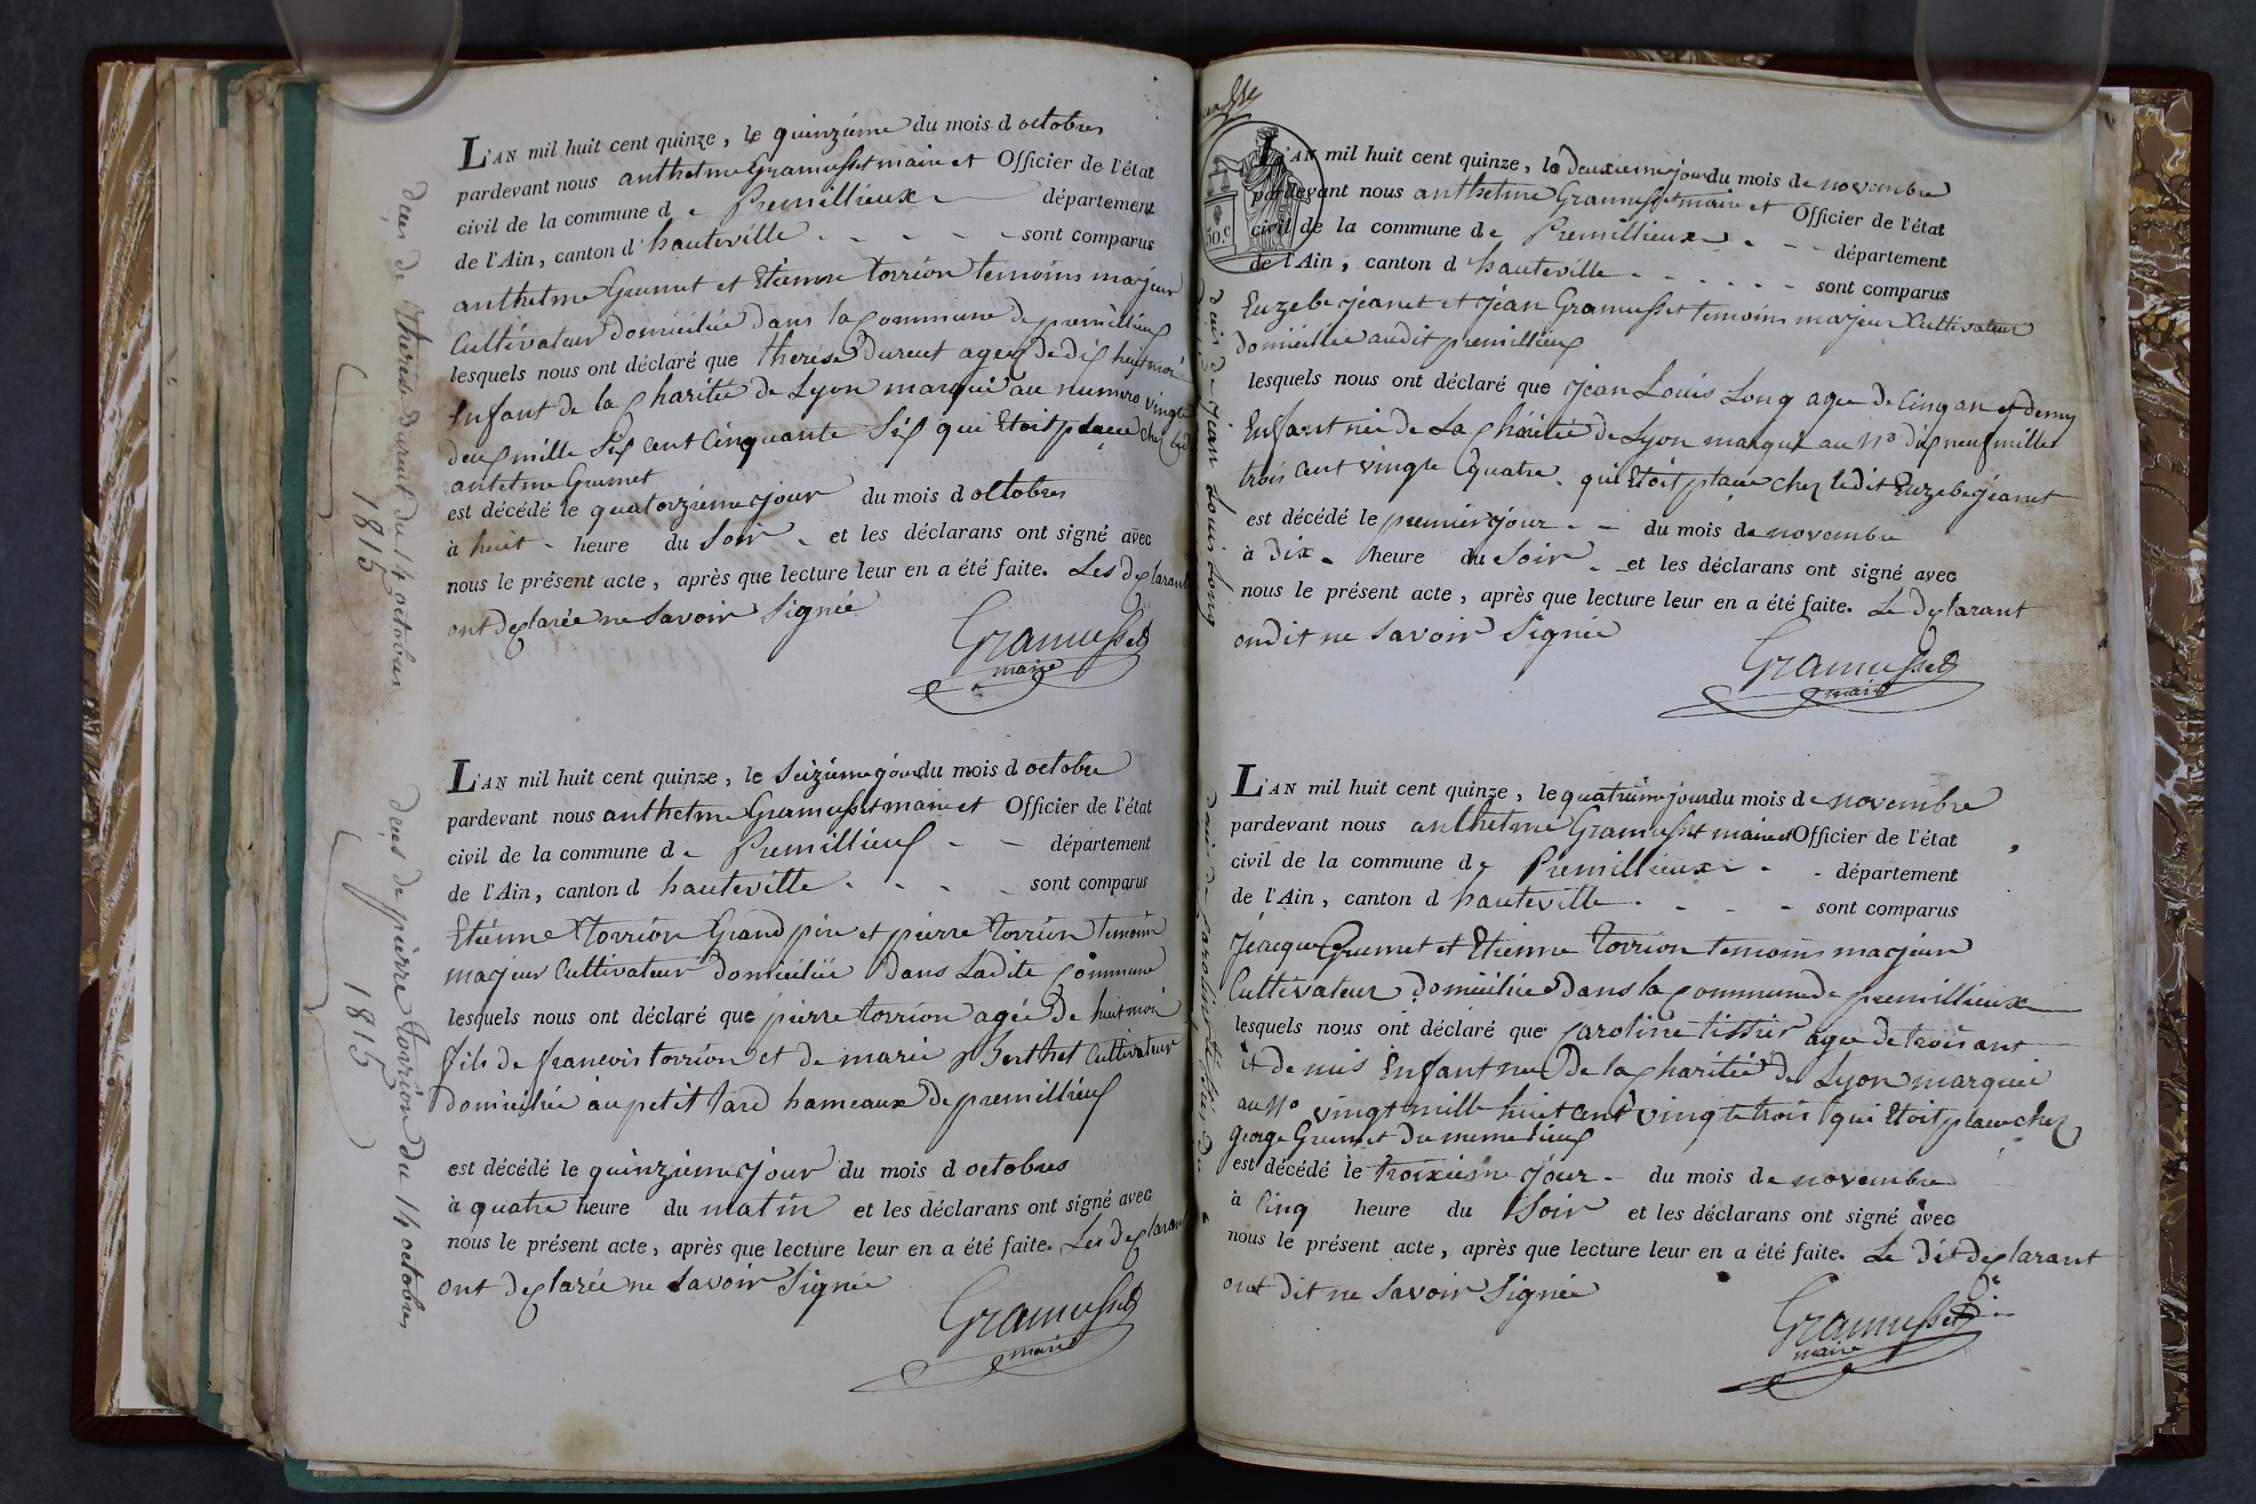 L'AN mil huit cent quinze, le quinziéme du mois d octobres
pardevant nous anthelme Gramusset maire et Officier de l'état
civil de la commune d e Premillieux département
de l'Ain, canton d'hauteville - - - - - sont comparus
anthelme Grumet et Etienne torrion temoins majeur
Cultivateur domicilié dans la Commune de premillieux
lesquels nous ont déclaré que therése Durent agee de dix huit moi
Enfant de la Charitée de Lyon marqué au numero vingt
deux mille Six cent Cinquante Six qui Etoit place chez
antelme Grumet
est décédé le quatorziéme jour du mois d octobres
à huit - heure du Soir - et les déclarans ont signé avec
nous le présent acte, après que lecture leur en a été faite. Les Declarant
ont Declarée ne Savoir Signée
Gramusset
maire
deces de therése Durent du 14 octobres
1815
L'AN mil huit cent quinze, le Seiziéme jour du mois d octobre
pardevant nous anthelme Gramusset maire et Officier de l'état
civil de la commune d e Premillieux - - département
de l'Ain, canton d hauteville - - - - sont comparus
Etiénne torrion Grand pére et piérre torrion temoin
majeur Cultivateur domiciliée Dans Ladite Commune
lesquels nous ont déclaré que piérre torrion agée de huit moi
fils de francois torrion et de marie Berthet Cultivateur
domiciliée au petit tard hameaux de premillieux
est décédé le quinziéme jour du mois d octobres
à quatre heure du matin et les déclarans ont signé avec
nous le présent acte, après que lecture leur en a été faite. Les Declarant
ont Declarée ne Savoir Signée
Gramusset
maire
deces de piérre torrion du 14 octobres
1815
50.c
L'AN mil huit cent quinze, le Deuxieme jour du mois de novembre
pardevant nous anthelme Gramusset maire et Officier de l'état
civil de la commune de Premillieux - - département
de l'Ain, canton d hauteville - - - - - sont comparus
Euzebe jeanet et jean Gramusset temoins majeur Cultivateur
domiciliée audit premillieux
lesquels nous ont déclaré que jean Louis Long agee de Cinq an et demy
Enfant née de La Charitée de Lyon marqué au No dix neuf mille
trois cent vingte quatre - qui Etoit place chez ledit Euzebe jeanet
est décédé le premiér jour - - du mois de novembre
à Dix - heure du Soir - et les déclarans ont signé avec
nous le présent acte, après que lecture leur en a été faite. Le Declarant
ondit ne Savoir Signée
Gramusset
maire
deces de jean Louis Long
L'AN mil huit cent quinze, le quatrieme jour du mois de novembre
pardevant nous anthelme Gramusset maire et Officier de l'état
civil de la commune de Premillieux - - département
de l'Ain, canton d hauteville - - - - sont comparus
jeacque Grumet et Etienne torrion temoins majeur
Cultivateur domiciliée dans la Commune de premillieux
lesquels nous ont déclaré que Caroline tissier agee de trois ant
et demis Enfant nee De la Charitée de Lyon marquée
au No vingt mille huit cent vingte trois qui Etoit place chez
George Grumet du meme lieux
est décédé le troixiéme jour - du mois de novembre
à Cinq heure du Soir et les déclarans ont signé avec
nous le présent acte, après que lecture leur en a été faite. Le Dit Declarant
ont Dit ne Savoir Signée
Gramusset
maire
deces de Caroline tissier du